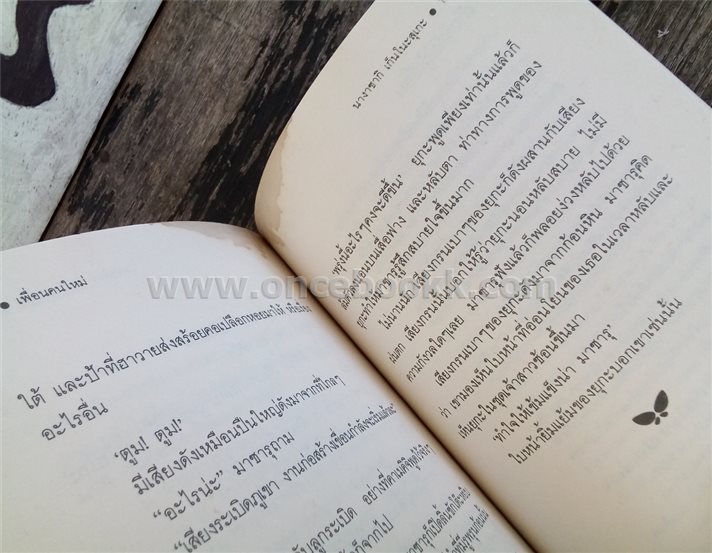 เพื่อนคนใหม่
ใต้ และป้าที่ฮาวายส่งสร้อยคอเปลือกหอยมาให้ หรือไม่ก็
อะไรอื่น
‘ตูม! ตูม!’
มีเสียงดังเหมือนปืนใหญ่ดังมาจากที่ไกลๆ
“อะไรน่ะ” มาซารุถาม
“เสียงระเบิดภูเขา งานก่อสร้างเขื่อนกำลังจะเริ่มแล้วละ”
นางาซากิ เก็นโนะสุเกะ
‘พรุ่งนี้อะไรๆ คงจะดีขึ้น’ ยูกะพูดเพียงเท่านั้นแล้วก็
ล้มตัวลงนอนบนเสื่อฟาง และหลับตา ท่าทางการพูดของ
ยูกะทำให้มาซารุรู้สึกสบายใจขึ้นมาก
ไม่นานนัก เสียงกรนเบาๆ ของยูกะก็ดังผสานกับเสียง
ฝนตก เสียงกรนนั้นบอกให้รู้ว่ายูกะนอนหลับสบาย ไม่มี
ความกังวลใดๆ เลย มาซารุฟังแล้วก็พลอยง่วงหลับไปด้วย
เสียงกรนเบาๆ ของยูกะดังมาจากก้อนหิน มาซารุคิด
ว่า เขามองเห็นใบหน้าที่อ่อนโยนของเธอในเวลาหลับและ
เห็นยูกะในชุดเจ้าสาวซ้อนขึ้นมา
‘ทำใจให้เข้มแข็งน่า มาซารุ’
ใบหน้ายิ้มแย้มของยูกะบอกเขาเช่นนั้น
www.oncebookk.com